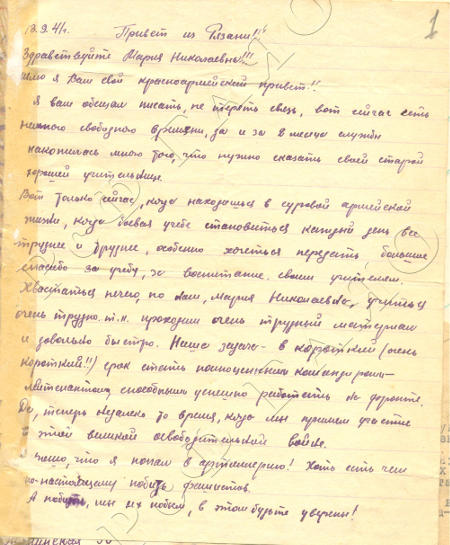 1
13.9.41г. Привет из Рязани!!!
Здравствуйте Мария Николаевна!!!
Шлю я Вам свой красноармейский привет!!
Я вам обещал писать, не терять связь, вот сейчас есть
немного свободного времени, да и за 2 месяца службы
накопилось много того, что нужно сказать своей старой
хорошей учительнице.
Вот только сейчас, когда находишься в суровой армейской
жизни, когда боевая учеба становиться каждый день все
труднее и труднее, особенно хочеться передать большое
спасибо за учебу, за воспитание своим учителям.
Хвастаться нечего, но нам, Мария Николаевна, учиться
очень трудно т.к. проходим очень трудный материал
и довольно быстро. Наша задача - в короткий (очень
короткий!!) срок стать полноценными командирами-
лейтенантами, способными успешно работать на фронте.
Да, теперь недалеко то время, когда мы примем участие
в этой великой освободительной войне.
что я попал в артиллерию! Хоть есть чем
по-настоящему побить фашистов.
А побить, мы их побьем, в этом будьте уверены!